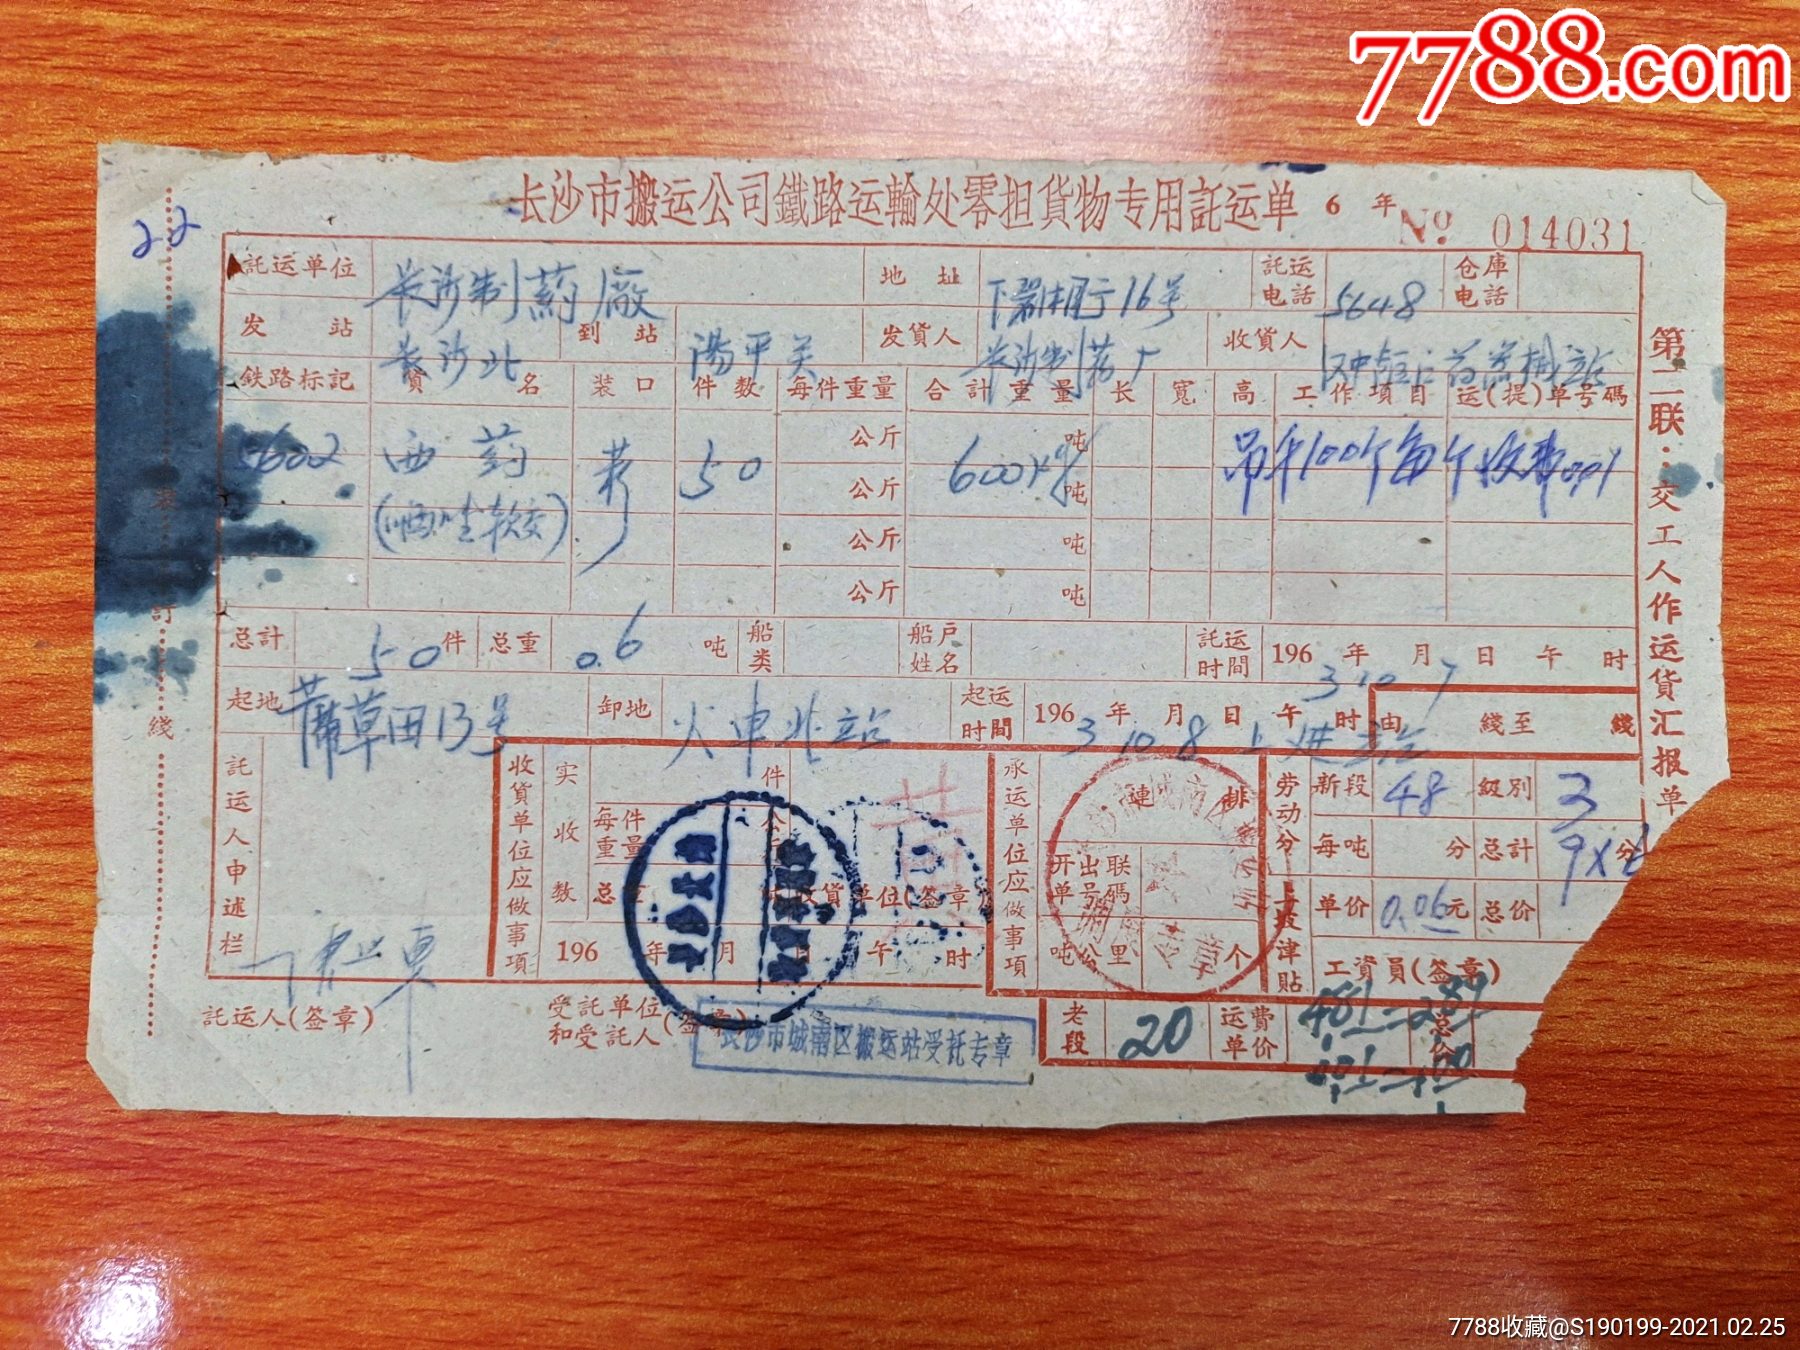 7788.com
长沙市搬运公司鐵路运輸处零担貨物专用託运单 6 年 № 014031
22
託运单位 长沙制药廠 地址 16号 託运电話 5648 仓庫电話
发站 长沙北 到站 阳平关 发貨人 长沙制药厂 收貨人
鉄路标記 貨名 装口 件数 每件重量 合計重量 长 寬 高 工作項目 运(提)单号碼
5602 西药 50 公斤 600 吨 100个每个收费0.01
公斤 吨
公斤 吨
公斤 吨
总計 50 件 总重 0.6 吨 船类 船戶姓名 託运时間 196 3 年 10 月 7 日 午 时
起地 草田13号 卸地 火车北站 起运时間 196 3 年 10 月 8 日 上 午 时 由 綫至 綫
託运人申述栏
收貨单位应做事項 实收数 件
每件重量 公斤
总重
收貨单位(签章)
196 年 月 日 午 时
承运单位应做事項 連 排
开出联单号碼
吨公里 个
劳动分 新段 48 級別 3
每吨 分 总計 分
上坡津貼 单价 0.06 元 总价
工資員(签章)
託运人(签章)
受託单位和受託人(签章)
长沙市城南区搬运站受託专章
老段 20 运费单价 总价
第二联:交工人作运货汇报单
装订綫
7788收藏@S190199-2021.02.25